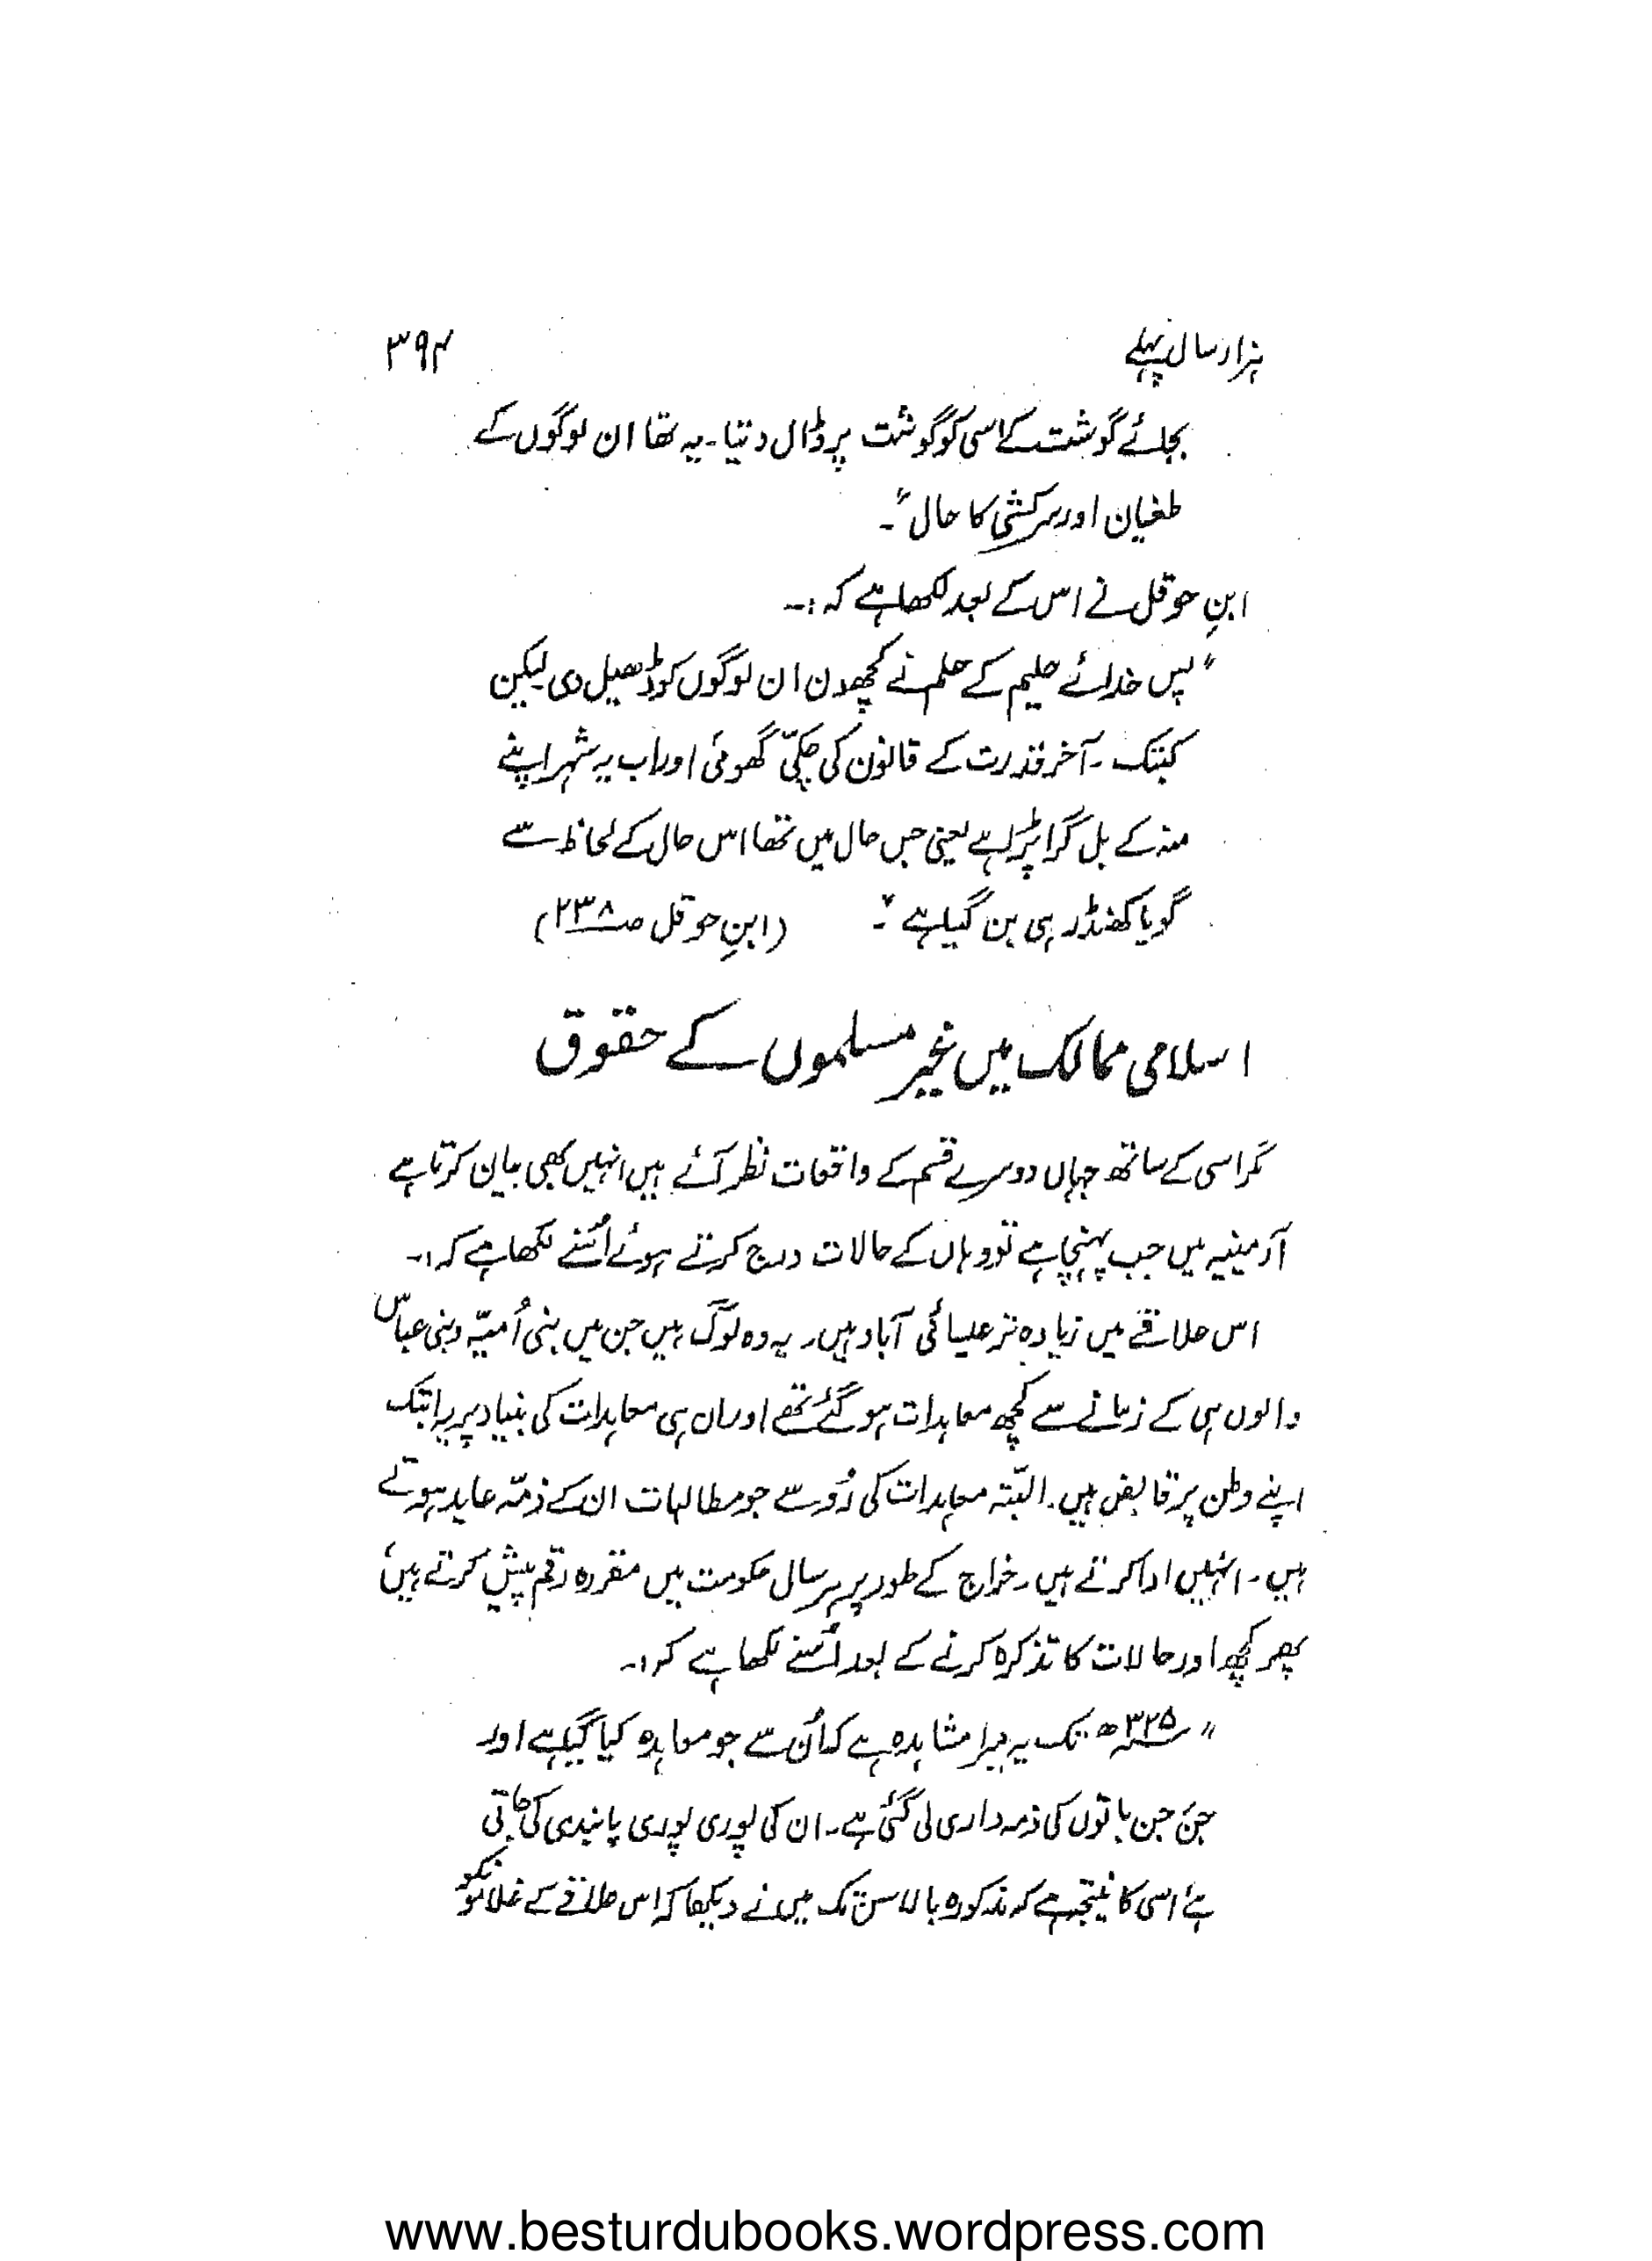 ہزار سال پہلے
۳۹۴
بجائے گوشت کے اسی کو گوشت پر ڈال دیتا۔ یہ تھا ان لوگوں کے
طغیان اور سرکشی کا حال"۔
ابنِ حوقل نے اس کے بعد لکھا ہے کہ :۔
"پس خدائے حلیم کے حلم نے کچھ دن ان لوگوں کو ڈھیل دی لیکن
کبتک ۔ آخر قدرت کے قانون کی چکّی گھومی اور اب یہ شہر اپنے
منہ کے بل گرا پڑا ہے یعنی جس حال میں تھا اس حال کے لحاظ سے
گویا کھنڈر ہی بن گیا ہے"۔ (ابنِ حوقل صـ۲۳۸)
اسلامی ممالک میں غیر مسلموں کے حقوق
مگر اسی کے ساتھ جہاں دوسرے قسم کے واقعات نظر آئے ہیں انہیں بھی بیان کرتا ہے
آرمینیہ میں جب پہنچا ہے تو وہاں کے حالات درج کرتے ہوئے اُسنے لکھا ہے کہ :۔
اس علاقے میں زیادہ تر عیسائی آباد ہیں۔ یہ وہ لوگ ہیں جن میں بنی اُمیّہ و بنی عباس
والوں ہی کے زمانے سے کچھ معاہدات ہو گئے تھے اور ان ہی معاہدات کی بنیاد پر یہ ابتک
اپنے وطن پر قابض ہیں۔ البتّہ معاہدات کی رُو سے جو مطالبات ان کے ذمّہ عاید ہوتے
ہیں ۔ انہیں ادا کرتے ہیں۔ خراج کے طور پر ہر سال حکومت میں مقررہ رقم پیش کرتے ہیں
پھر کچھ اور حالات کا تذکرہ کرنے کے بعد اُسنے لکھا ہے کہ :۔
"۳۲۵ھ تک یہ میرا مشاہدہ ہے کہ اُن سے جو معاہدہ کیا گیا ہے اور
جن جن باتوں کی ذمہ داری لی گئی ہے۔ ان کی پوری پوری پابندی کی جاتی
ہے اسی کا نتیجہ ہے کہ مذکورہ بالا سن تک میں نے دیکھا کہ اس علاقے کے غلاموں کو
www.besturdubooks.wordpress.com